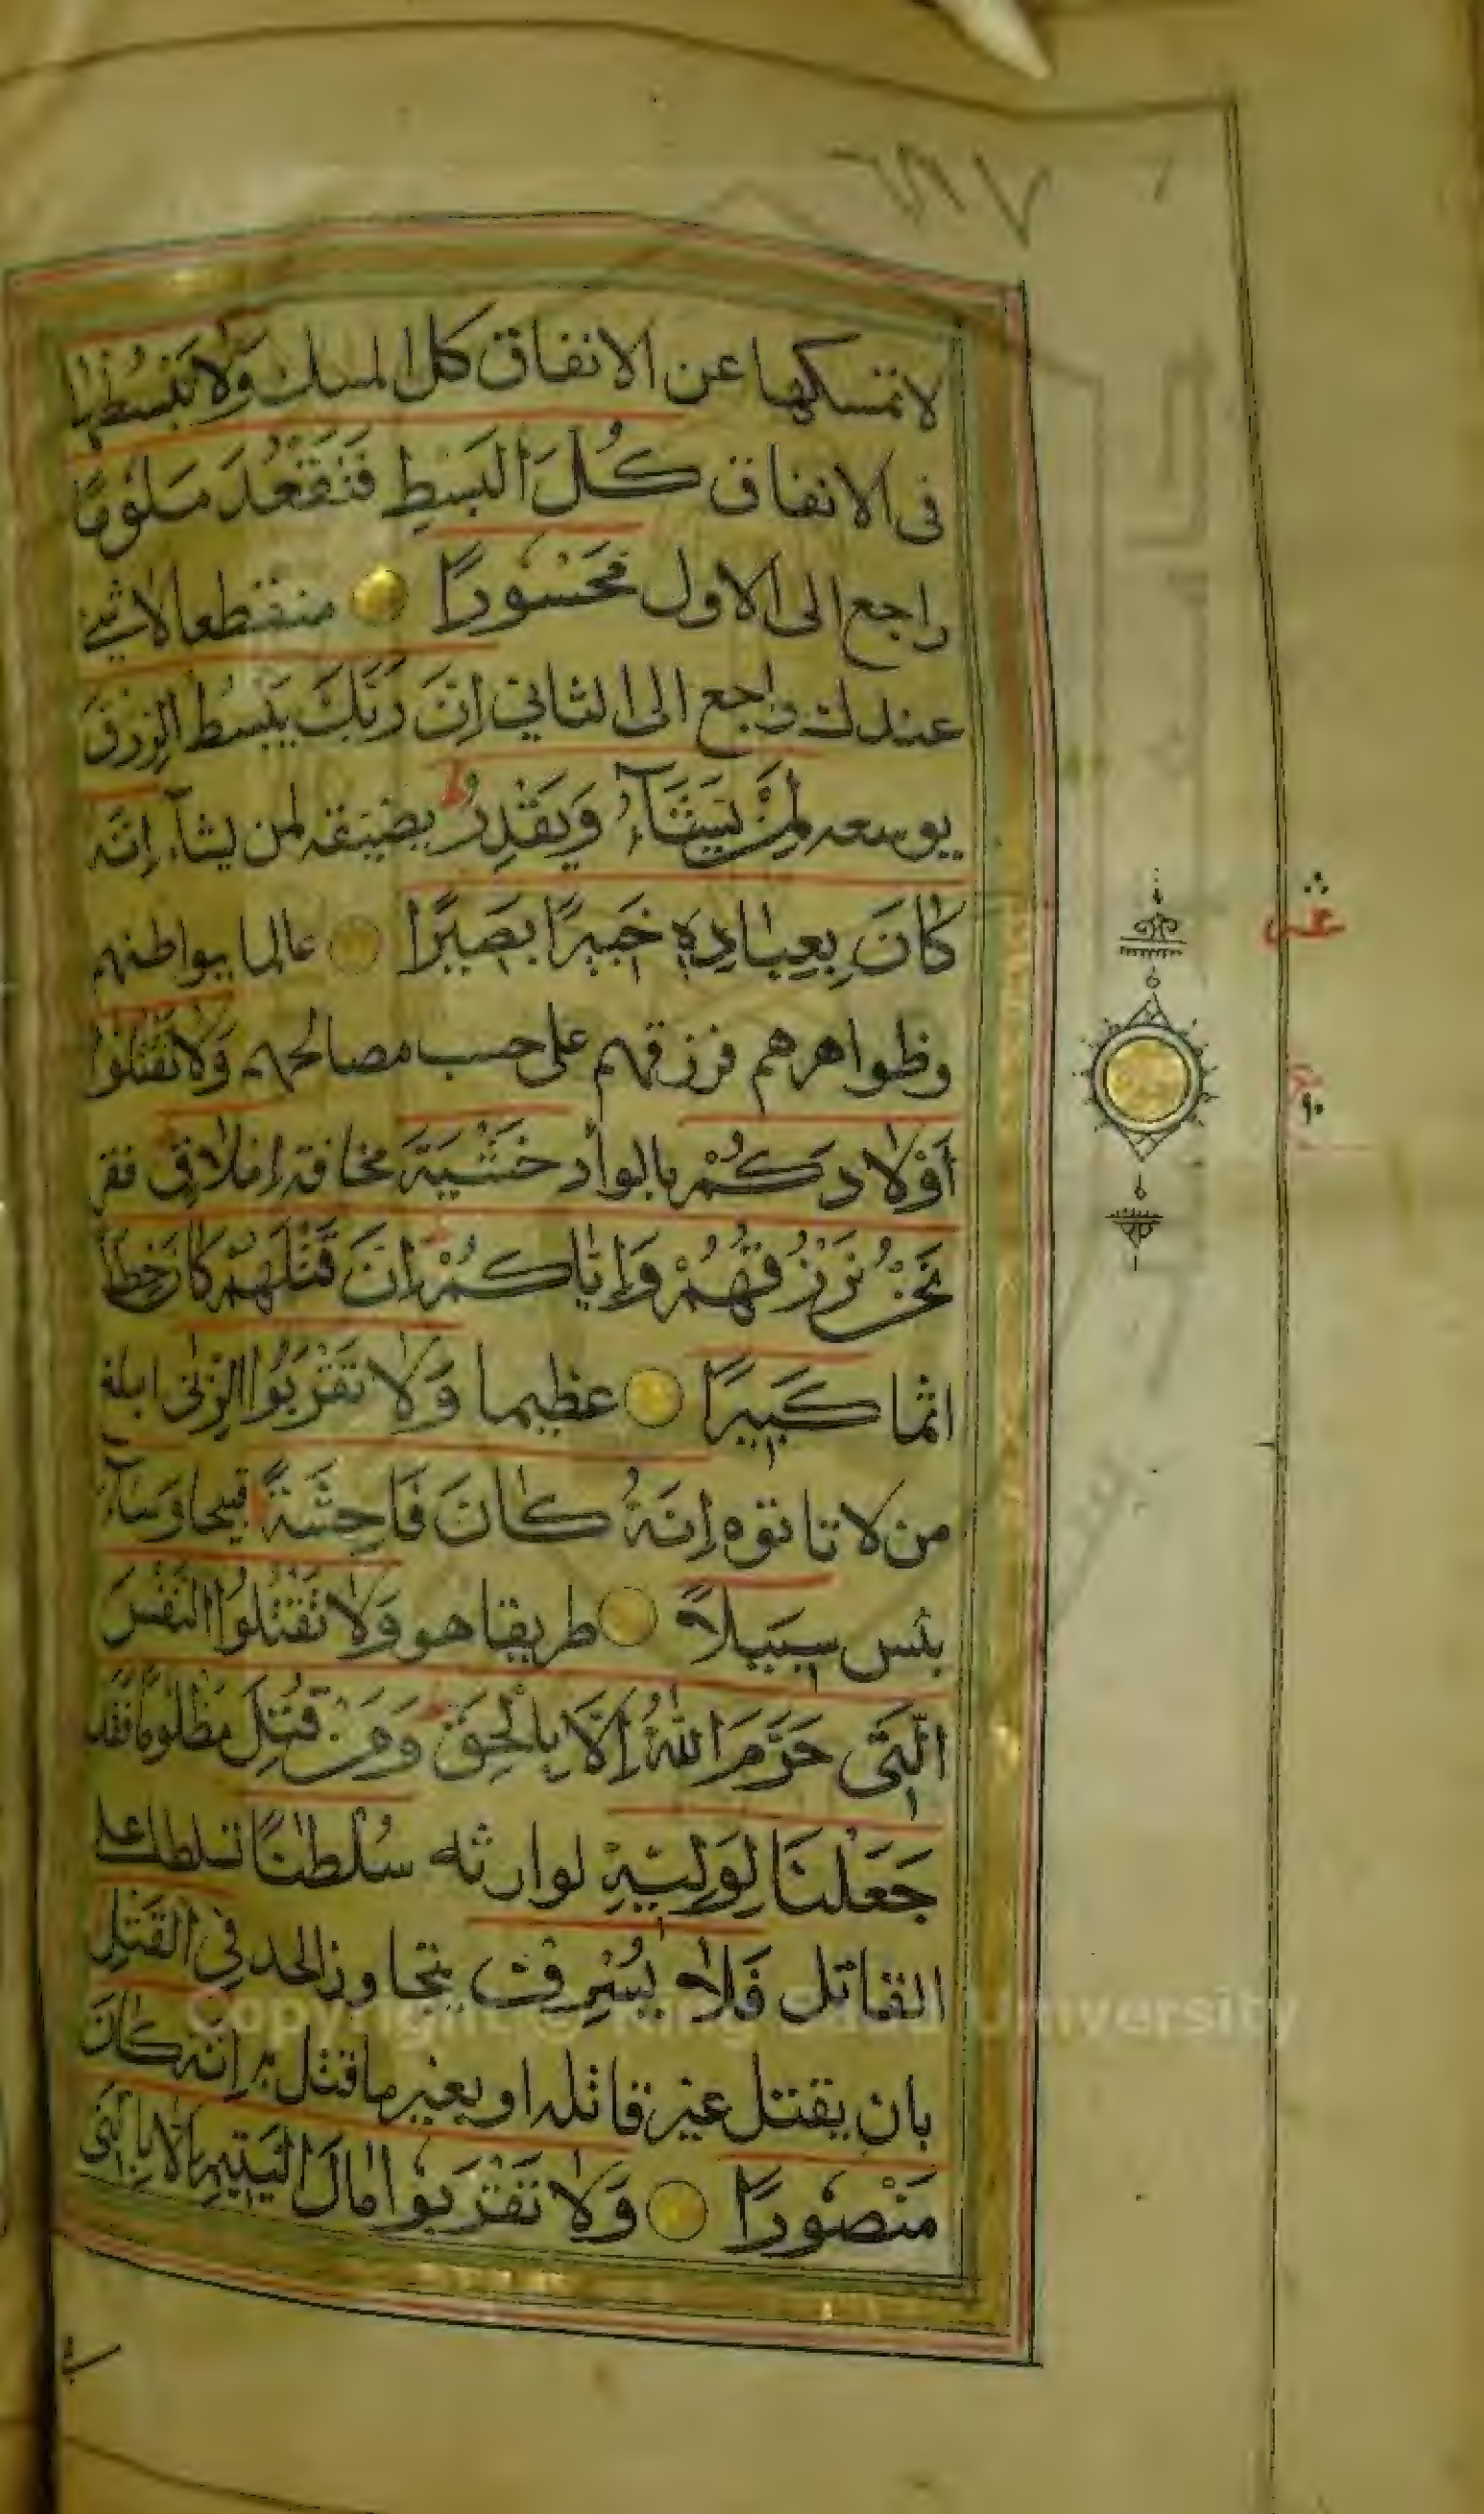 لا تمسكها عن الانفاق كل المسك وَلَا تَبْسُطْهَا
فى الانفاق كُلَّ الْبَسْطِ فَتَقْعُدَ مَلُومًا
راجع الى الاول مَحْسُورًا منقطعا لا شئ
عندك راجع الى الثاني اِنَّ رَبَّكَ يَبْسُطُ الرِّزْقَ
يوسعه لِمَنْ يَشَآءُ وَيَقْدِرُ يضيقه لمن يشآء اِنَّهُ
كَانَ بِعِبَادِهِ خَبِيرًا بَصِيرًا عالما ببواطنهم
وظواهرهم فرزقهم على حسب مصالحهم وَلَا تَقْتُلُوا
اَوْلَادَكُمْ بالوأد خَشْيَةَ مخافة اِمْلَاقٍ فقر
نَحْنُ نَرْزُقُهُمْ وَاِيَّاكُمْ اِنَّ قَتْلَهُمْ كَانَ خِطْأً
اثما كَبِيرًا عظيما وَلَا تَقْرَبُوا الزِّنٰى ابلغ
من لا تاتوه اِنَّهُ كَانَ فَاحِشَةً قبيحا وَسَآءَ
بئس سَبِيلًا طريقا هو وَلَا تَقْتُلُوا النَّفْسَ
الَّتِى حَرَّمَ اللّٰهُ اِلَّا بِالْحَقِّ وَمَنْ قُتِلَ مَظْلُومًا فَقَدْ
جَعَلْنَا لِوَلِيِّهِ لوارثه سُلْطٰنًا تسلطا على
القاتل فَلَا يُسْرِفْ يتجاوز الحد فِى الْقَتْلِ
بان يقتل غير قاتله او بغير ما قتل به اِنَّهُ كَانَ
مَنْصُورًا وَلَا تَقْرَبُوا مَالَ الْيَتِيمِ اِلَّا بِالَّتِى
عشر
Copyright © King Saud University